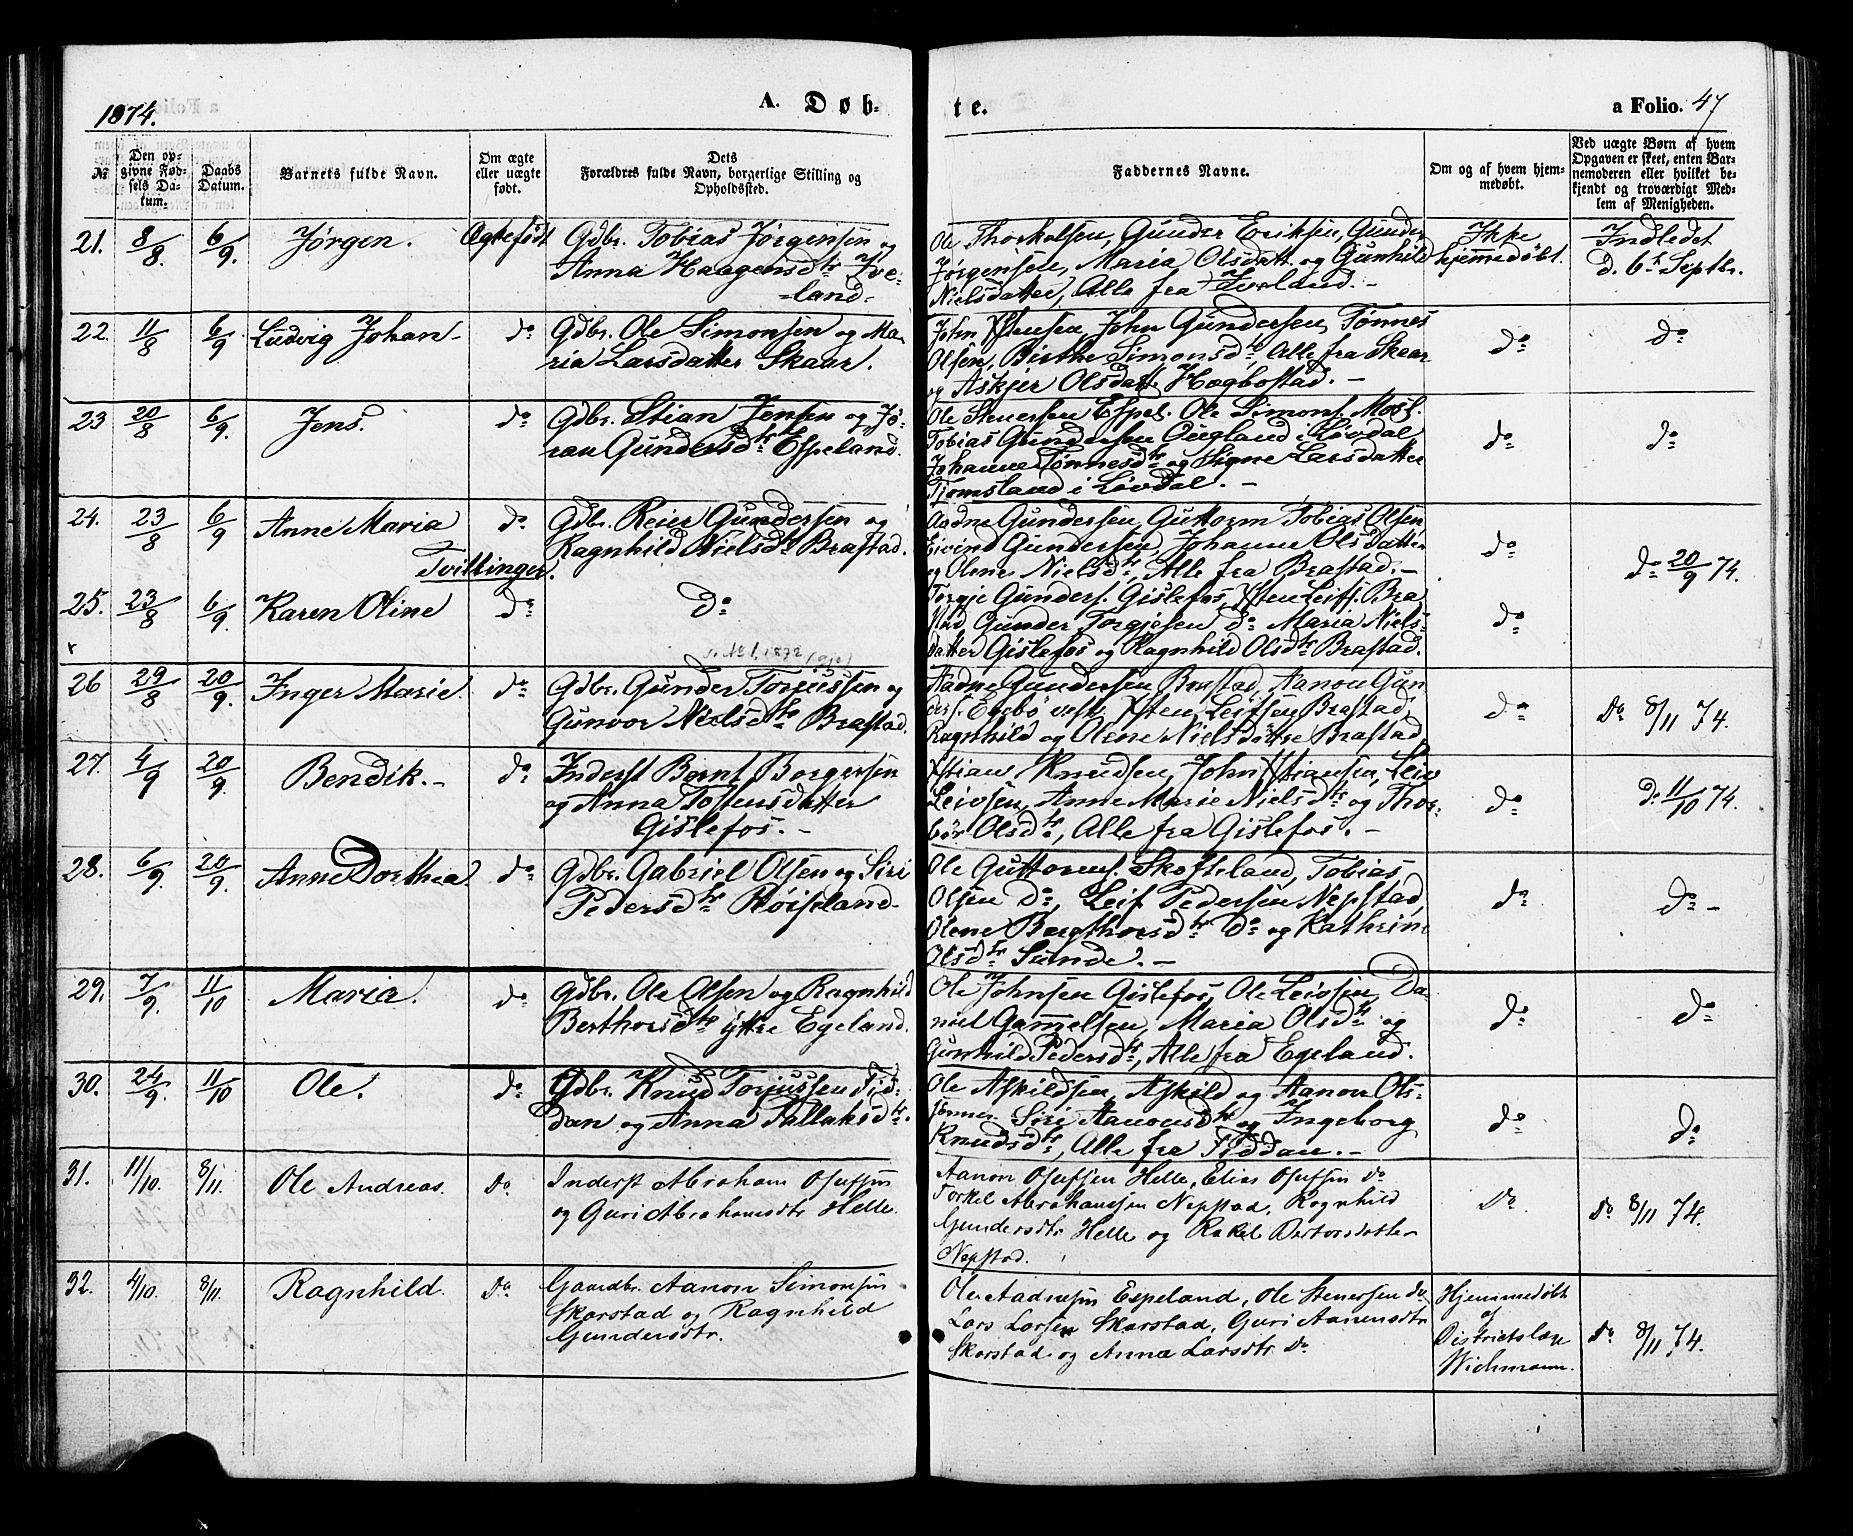 1874.
A. Døb-
te.
a Folio. 47
№
Den op-
givne Fød-
sels Da-
tum.
Daabs
Datum.
Barnets fulde Navn.
Om ægte
eller uægte
født.
Dets
Forældres fulde Navn, borgerlige Stilling og
Opholdssted.
Faddernes Navne.
Om og af hvem hjem-
medøbt.
Ved uægte Børn af hvem
Opgaven er skeet, enten Bar-
nemoderen eller hvilket be-
kjendt og troværdigt Med-
lem af Menigheden.
21. 8/8. 6/9. Jørgen. Ægtefødt
Gdbr. Tobias Jørgensen og
Anna Haagensdtr Ive-
land-
Ole Thorkelsen, Gunder Eriksen, Gunder
Jørgensen, Maria Olsdatt. og Gunhild
Nielsdatter, Alle fra Iveland.-
Ikke
hjemmedøbt.
Indledet
d. 6t Septbr.
22. 11/8 6/9 Ludvig Johan- do
Gdbr. Ole Simonsen og Ma-
ria Larsdatter Skaar.
John Xstensen, John Gundersen, Tønnes
Olsen, Birthe Simonsdtr, Alle fra Skaar
og Askjer Olsdatt. Hægbostad.-
do
do
23 20/8 6/9. Jens. do
Gdbr. Stian Jensen og Jø-
ran Gundersdtr Espeland.
Ole Stenersen Espel. Ole Simons. Mosl.
Tobias Gundersen Øugland i Løvdal,
Johanne Tønnesdtr og Signe Larsdatter
Tjomsland i Løvdal.-
do
do
24. 23/8 6/9 Anne Maria do
Tvillinger.
Gdbr. Reier Gundersen og
Ragnhild Nielsdtr Brastad.
Aadne Gundersen, Guttorm Tobias Olsen,
Eivind Gundersen, Johanne Olsdatter
og Olene Nielsdtr, Alle fra Brastad.-
do
do 20/9 74.
25. 23/8 6/9. Karen Oline do
do
Torgje Gunders. Gislefos, Xsten Leifs. Bra
stad, Gunder Torgjesen do Maria Niels-
datter Gislefos og Ragnhild Olsdtr Brastad.
do
No 1, 1872
26 29/8 20/9. Inger Marie. do
Gdbr. Gunder Torjussen og
Gunvor Nielsdtr Brastad.
Aadne Gundersen Brastad, Aanon Gun
ders. Egebø vestr. Xsten Leifsen Brastad,
Ragnhild og Olene Nielsdøttre Brastad
do
Do 8/11 74.
27. 4/9 20/9. Bendik.- do
Inderst Bernt Børgersen
og Anna Tostensdatter
Gislefos.-
Xstian Knudsen, John Xstiansen, Leiv
Leivsen, Anne Marie Nielsdtr og Thor-
bør Olsdtr, Alle fra Gislefos.-
do
do 11/10 74.
28. 6/9. 20/9. Anne Dorthea. do
Gdbr. Gabriel Olsen og Siri
Pedersdtr Høiseland-
Ole Guttorms. Skofteland, Tobias
Olsen do, Leif Pedersen Nepstad,
Olene Bergthorsdtr Do og Kathrine
Olsdtr Sunde.-
do
do-
29. 7/9. 11/10 Maria. do
Gdbr. Ole Olsen og Ragnhild
Berthorsdtr ytre Egeland.
Ole Johnsen Gislefos, Ole Leivsen, Da-
niel Gammelsen, Maria Olsdtr og
Gunhild Pedersdtr, Alle fra Egeland.
do
do
30. 24/9. 11/10 Ole. do
Gdbr. Knud Torjussen Fid-
dan og Anna Tallaksdtr.
Ole Askildsen, Askild og Aanon Ols-
sønner. Siri Aanonsdtr og Ingeborg
Knudsdtr, Alle fra Fiddan.-
do
do
31. 11/10. 8/11. Ole Andreas. Do
Inderst Abraham Osufsen
og Guri Abrahamsdtr Helle.
Aanon Osufsen Helle, Elias Osufsen do
Torkel Abrahamsen Nepstad, Ragnhild
Gundersdtr Helle og Rakel Bertorsdatter
Nepstad.
Do.
Do 8/11 74.
32. 4/10. 8/11. Ragnhild. Do
Gaardbr. Aanon Simonsen
Skarstad og Ragnhild
Gundersdtr.
Ole Aadnesen Espeland, Ole Stenersen do
Lars Larsen Skarstad, Guri Aanensdtr
Skarstad og Anna Larsdtr Do
Hjemmedøbt
af
Districtslæge
Wichmann.
Do 8/11 74.